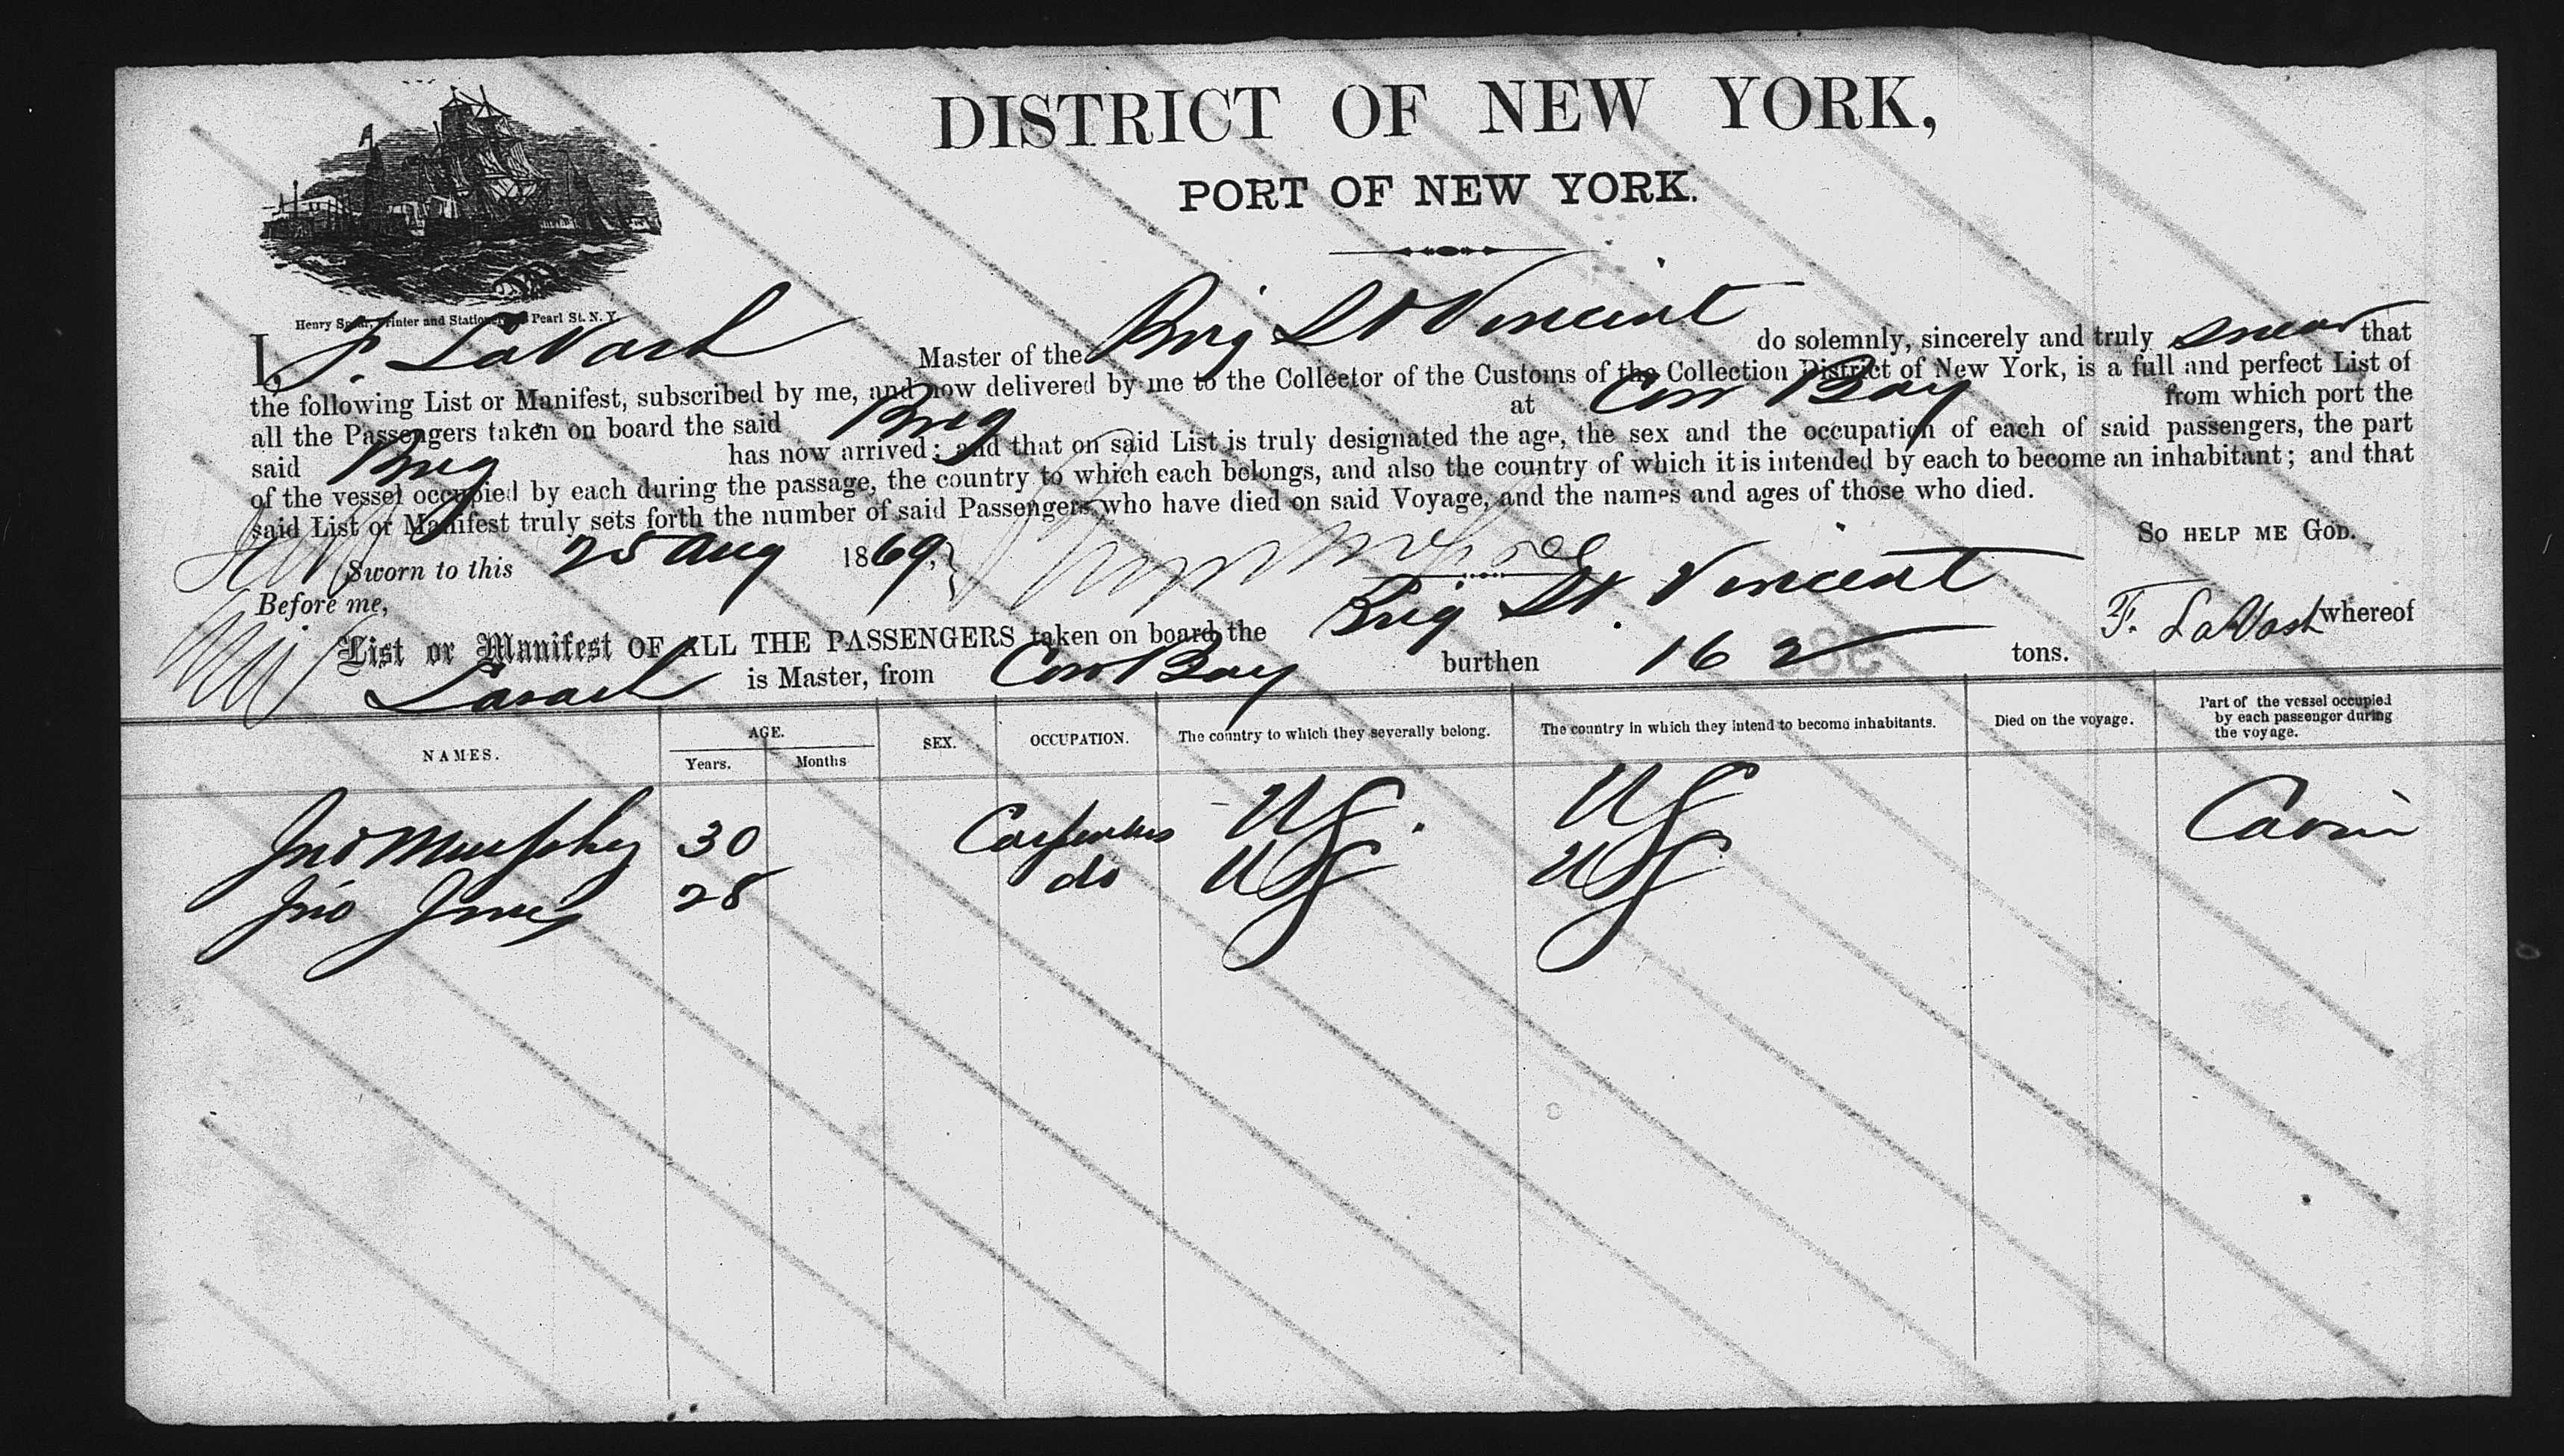 DISTRICT OF NEW YORK,
PORT OF NEW YORK.
Henry Spear, Printer and Stationer, Pearl St. N. Y.
I, F. LaVash Master of the Brig St Vincent do solemnly, sincerely and truly swear that
the following List or Manifest, subscribed by me, and now delivered by me to the Collector of the Customs of the Collection District of New York, is a full and perfect List of
all the Passengers taken on board the said Brig at Cow Bay from which port the
said Brig has now arrived; and that on said List is truly designated the age, the sex and the occupation of each of said passengers, the part
of the vessel occupied by each during the passage, the country to which each belongs, and also the country of which it is intended by each to become an inhabitant; and that
said List or Manifest truly sets forth the number of said Passengers who have died on said Voyage, and the names and ages of those who died.
So HELP ME GOD.
Sworn to this 25 Aug 1869,
Before me,
F. LaVash
List or Manifest OF ALL THE PASSENGERS taken on board the Brig St. Vincent whereof
Lavash is Master, from Cow Bay burthen 162 tons.
NAMES. AGE. Years. Months SEX. OCCUPATION. The country to which they severally belong. The country in which they intend to become inhabitants. Died on the voyage. Part of the vessel occupied by each passenger during the voyage.
Jno Murphy 30 Carpenter US US Cabin
Jno Jones 28 do US US